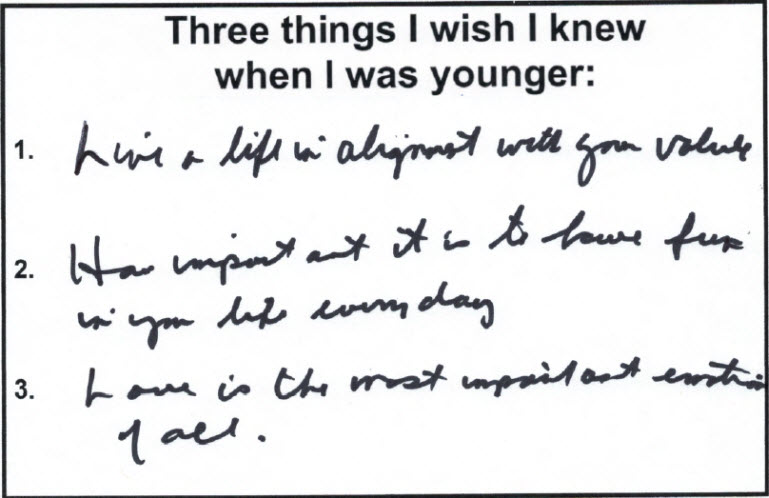 Three things I wish I knew
when I was younger:
1. Live a life in alignment with your values
2. How important it is to have fun
in your life every day
3. Love is the most important emotion
of all.